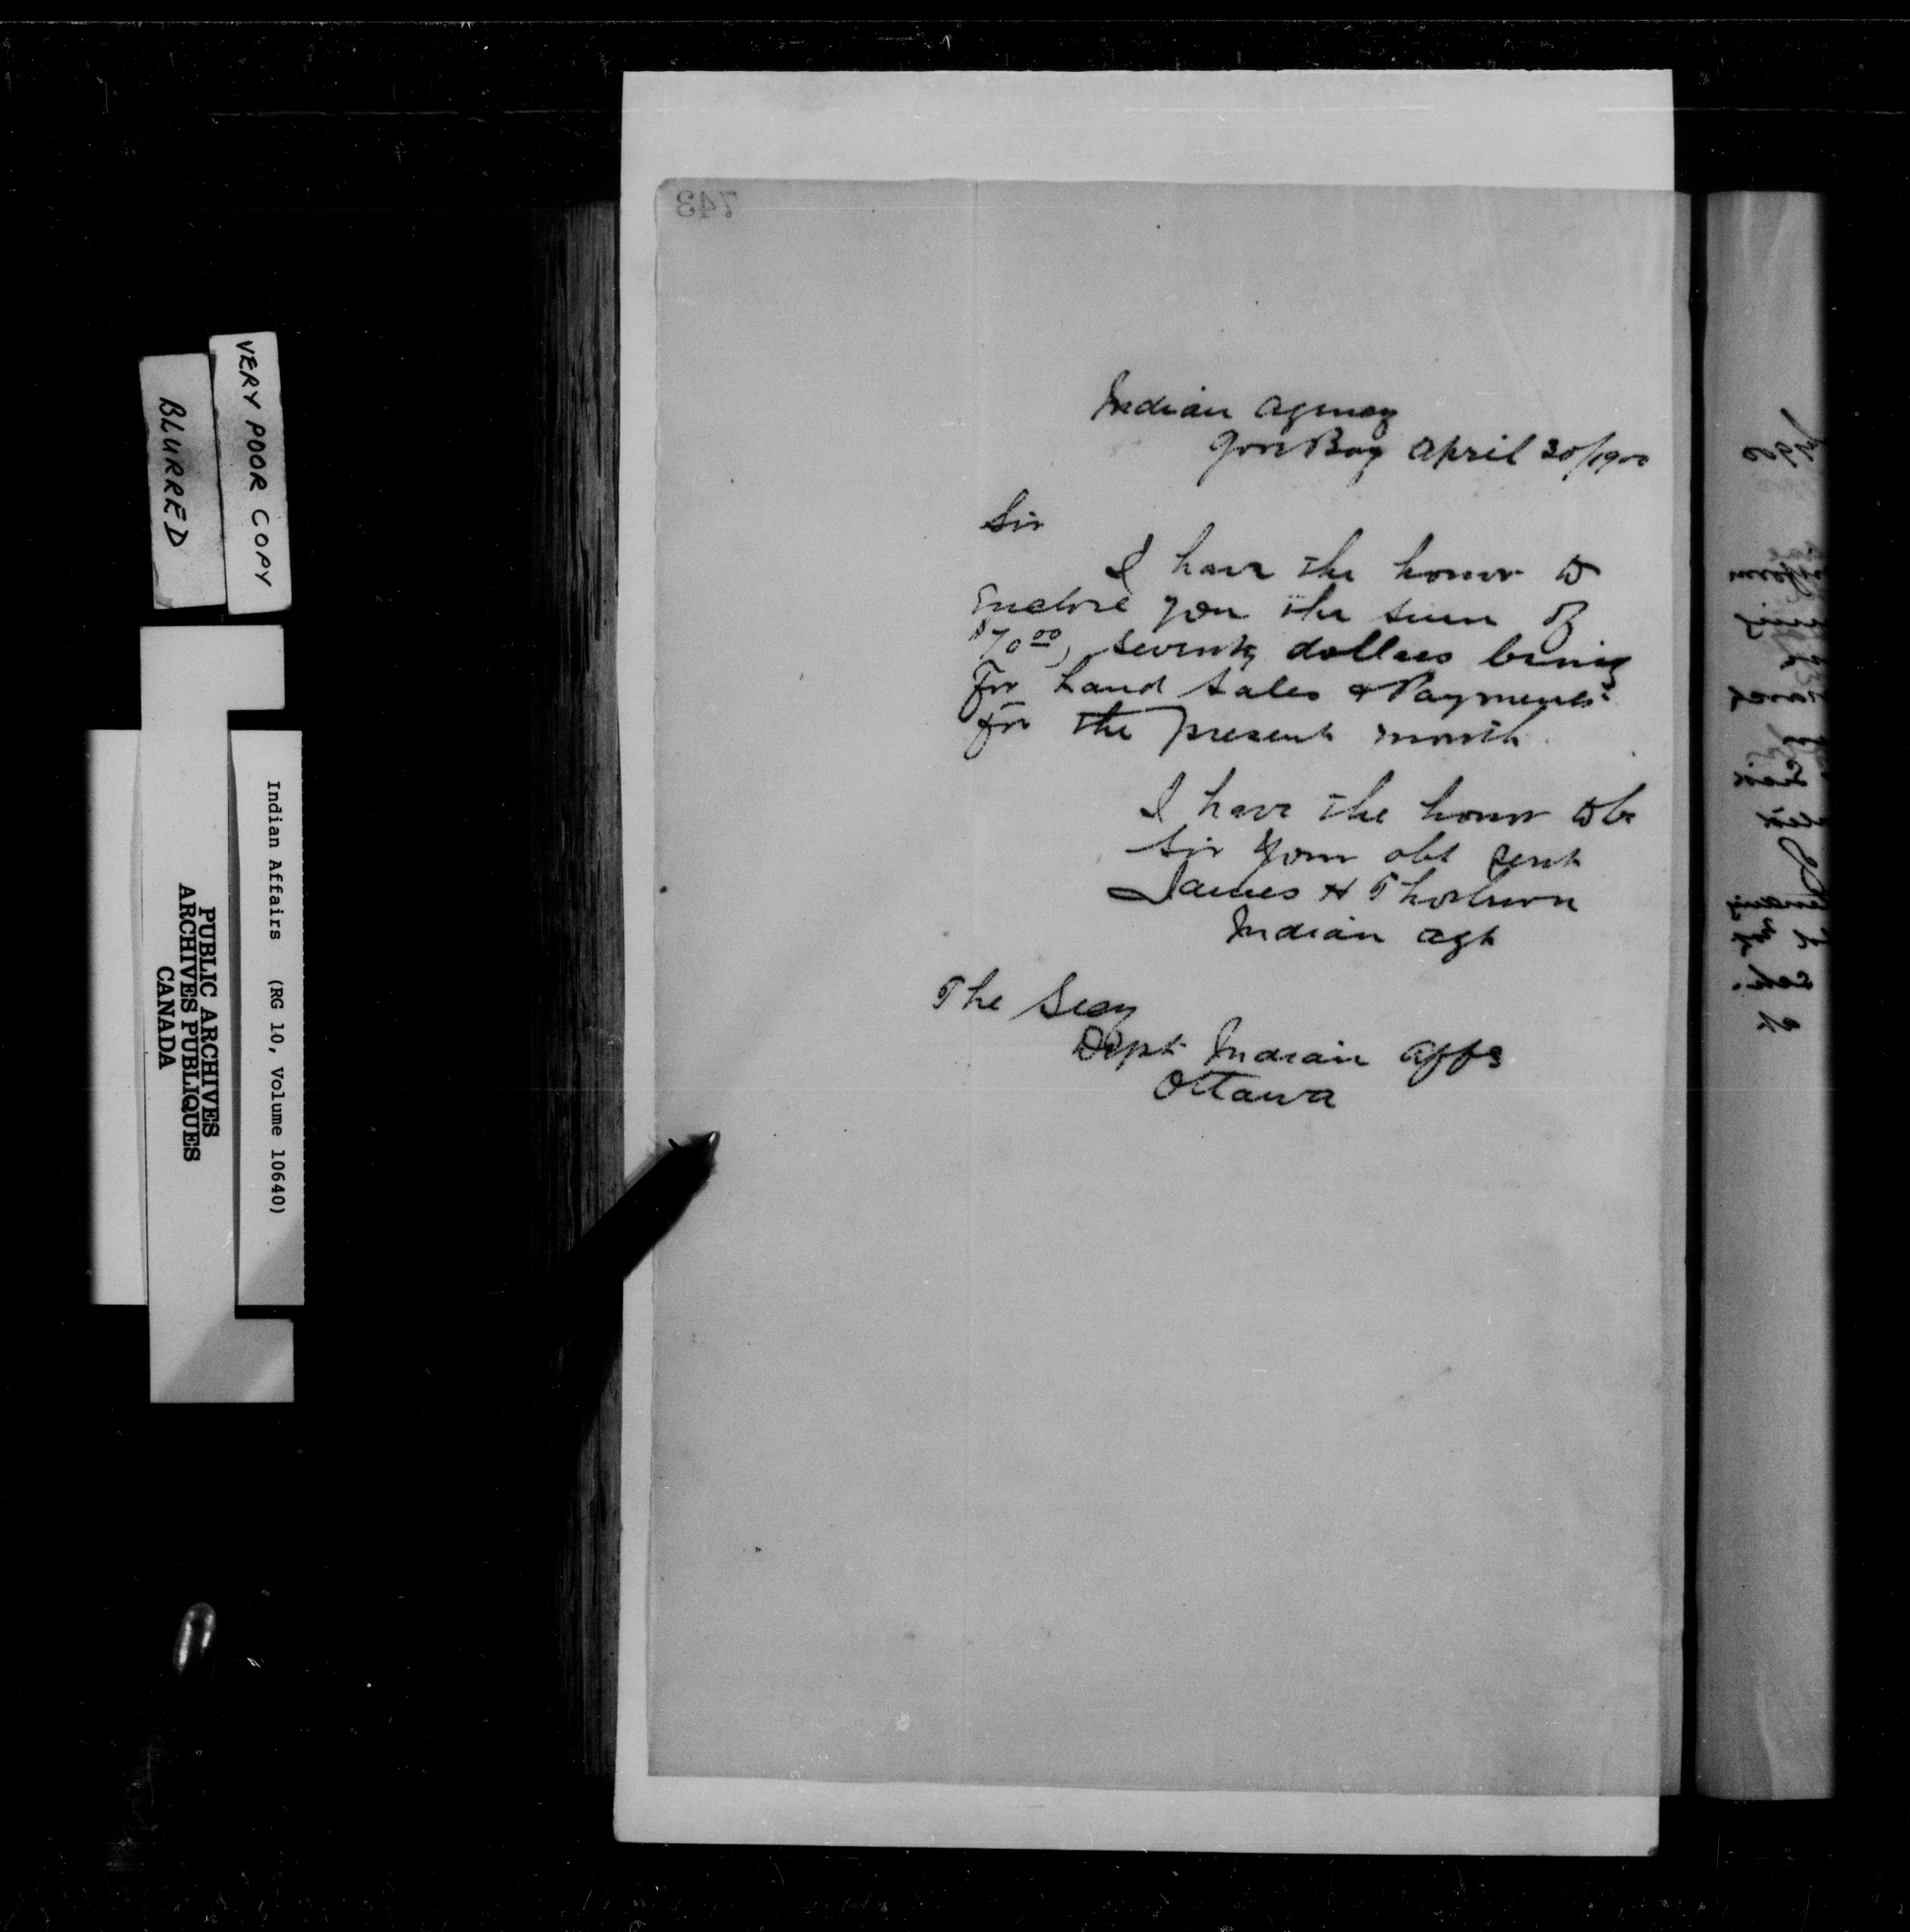 743
Indian Agency
Gore Bay April 30/1900
Sir
I have the honor to
Enclose you the sum of
$70.00, seventy dollars being
For Land Sales & Payments
for the present month
I have the honor to be
Sir Your obt Servt
James H Thorburn
Indian Agt
The Secy
Dept Indian Affs
Ottawa
VERY POOR COPY
BLURRED
Indian Affairs (RG 10, Volume 10640)
PUBLIC ARCHIVES
ARCHIVES PUBLIQUES
CANADA